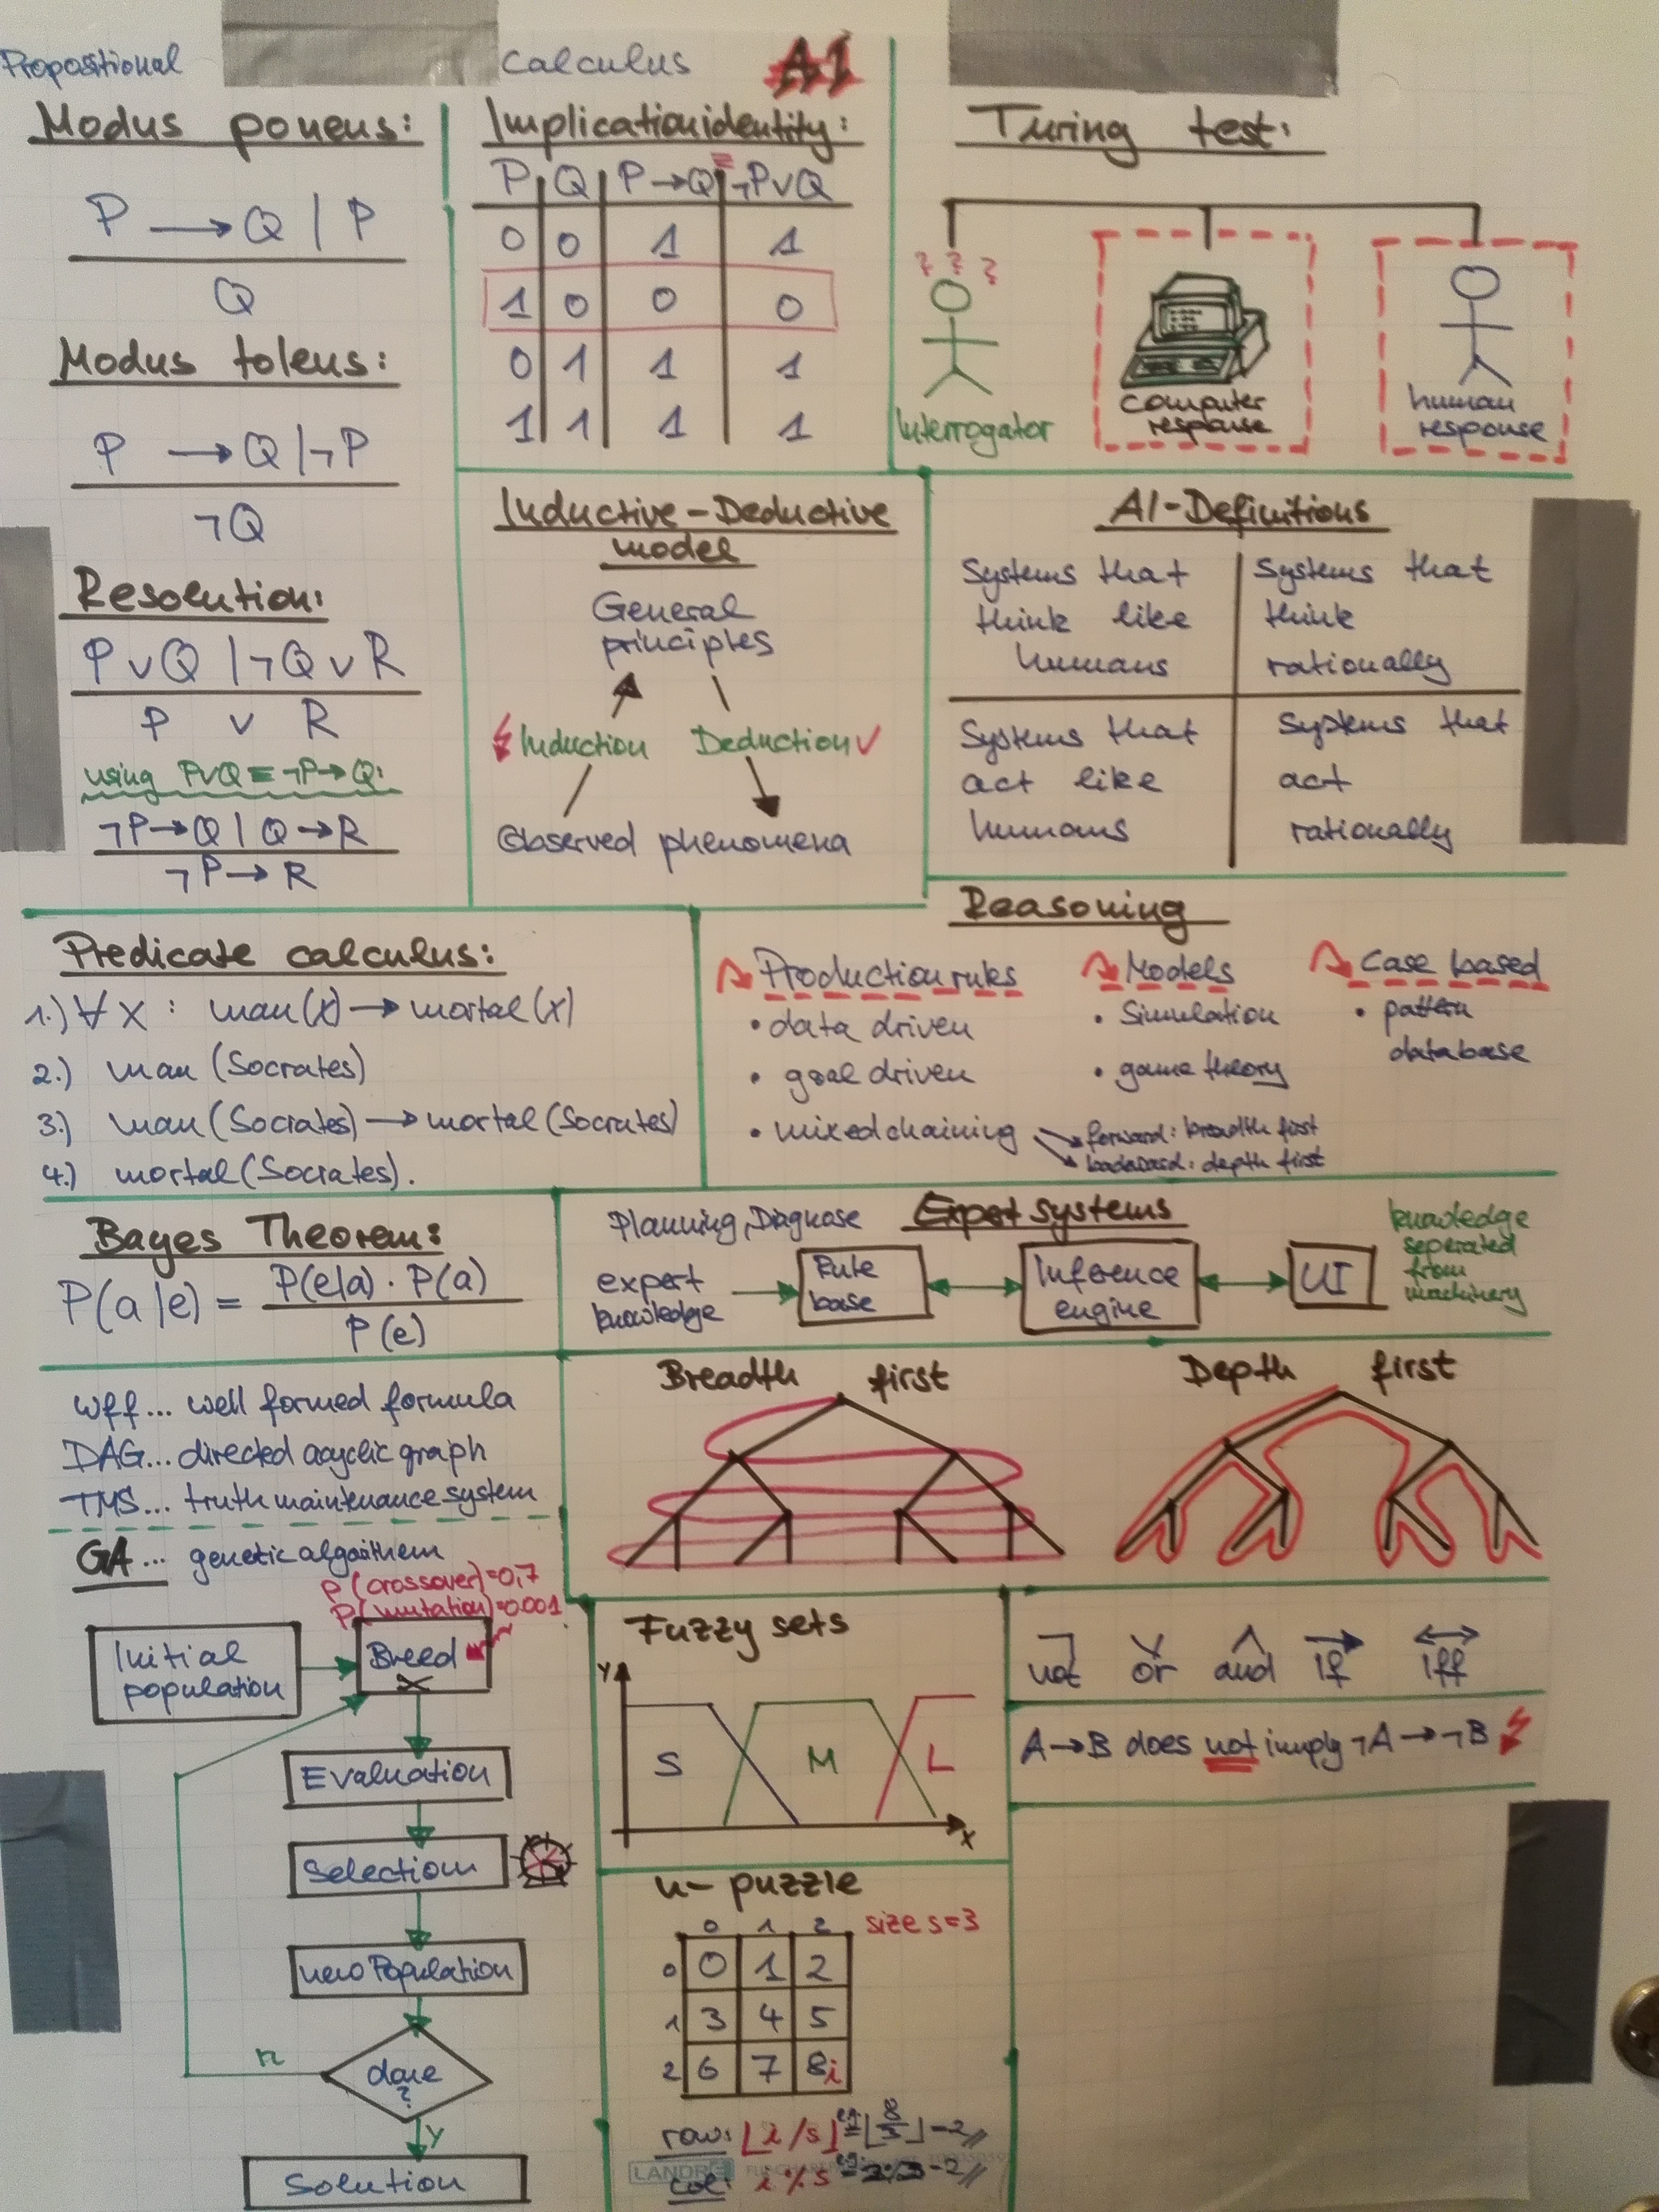 Propositional Calculus AI
Modus ponens:
P → Q | P
Q
Modus tolens:
P → Q | ¬P
¬Q
Resolution:
P ∨ Q | ¬Q ∨ R
P ∨ R
using P∨Q ≡ ¬P→Q:
¬P→Q | Q→R
¬P→R
Implicationidentity:
P Q P→Q ≡ ¬P∨Q
0 0 1 1
1 0 0 0
0 1 1 1
1 1 1 1
Turing test:
? ? ?
Interrogator
computer
response
human
response
Inductive-Deductive
model
General
principles
Induction Deduction ✓
Observed phenomena
AI-Definitions
Systems that
think like
humans
Systems that
think
rationally
Systems that
act like
humans
Systems that
act
rationally
Predicate calculus:
1.) ∀ x : man(x) → mortal(x)
2.) man (Socrates)
3.) man (Socrates) → mortal (Socrates)
4.) mortal (Socrates).
Reasoning
Production rules
• data driven
• goal driven
• mixed chaining
forward: breadth first
backward: depth first
Models
• Simulation
• game theory
Case based
• pattern
database
Bayes Theorem:
P(a|e) = P(e|a) · P(a)
P(e)
Planning, Diagnose Expert systems
expert
knowledge
Rule
base
Inference
engine
UI
knowledge
seperated
from
machinery
wff... well formed formula
DAG... directed acyclic graph
TMS... truth maintenance system
GA... genetic algorithem
P(crossover)=0,7
P(mutation)=0.001
Initial
population
Breed
Evaluation
Selection
new Population
done
?
n
Y
Solution
Breadth first
Depth first
Fuzzy sets
Y
S M L
X
¬ ∨ ∧ → ↔
not or and if iff
A→B does not imply ¬A→¬B
n-puzzle
size s=3
0 1 2
0 0 1 2
1 3 4 5
2 6 7 8i
row: ⌊i/s⌋ eg. = ⌊8/3⌋ = 2
col: i % s
LANDRÉ